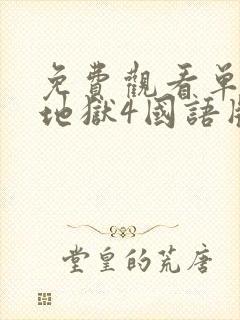 免費觀看單
地獄4國語版
堂皇的荒唐